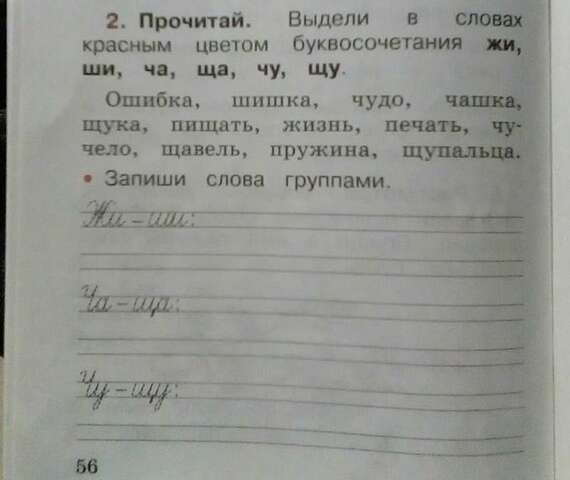 2. Прочитай. Выдели в словах
красным цветом буквосочетания жи,
ши, ча, ща, чу, щу.
Ошибка, шишка, чудо, чашка,
щука, пищать, жизнь, печать, чу-
чело, щавель, пружина, щупальца.
• Запиши слова группами.
Жи – ши:
Ча – ща:
Чу – щу:
56